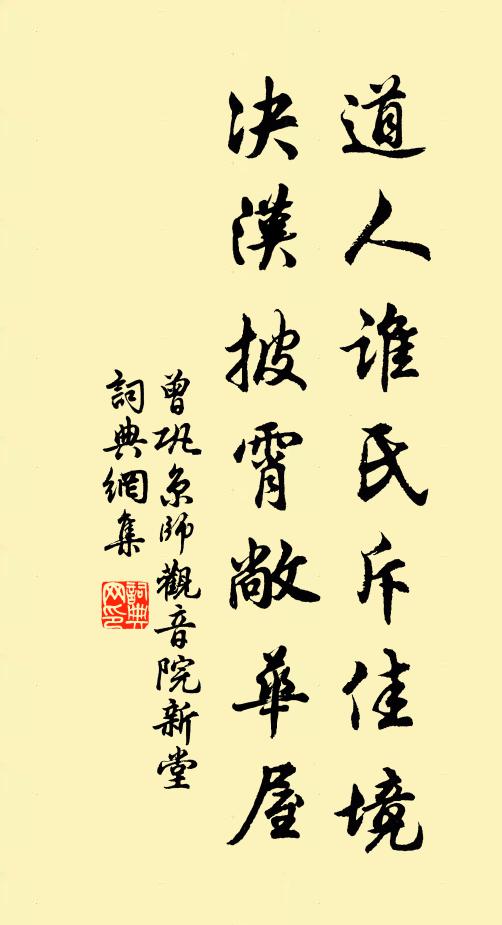 道人谁氏斥佳境
决漠披霄敞華屋
曾巩京师觀音院新堂
詞典網集
詞典网印